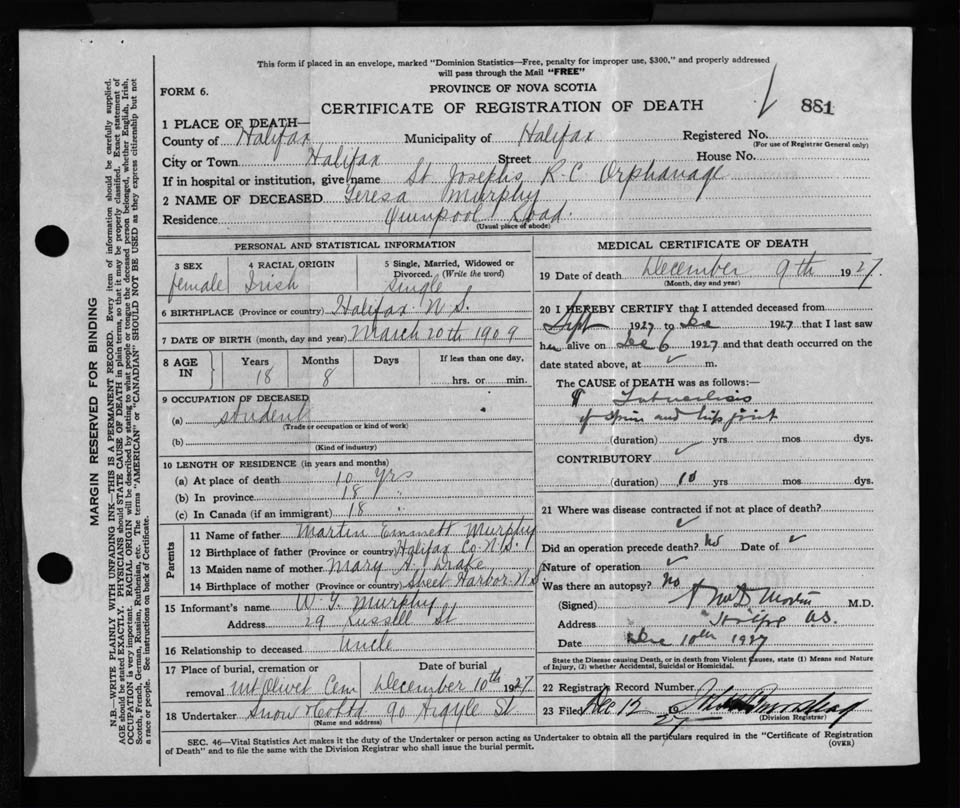 This form if placed in an envelope, marked "Dominion Statistics—Free, penalty for improper use, $300," and properly addressed
will pass through the Mail "FREE"
FORM 6.
PROVINCE OF NOVA SCOTIA
CERTIFICATE OF REGISTRATION OF DEATH
881
1 PLACE OF DEATH—
County of Halifax Municipality of Halifax Registered No.
(For use of Registrar General only)
City or Town Halifax Street House No.
If in hospital or institution, give name St Josephs R-C Orphanage
2 NAME OF DECEASED Teresa Murphy
Residence Quinpool Road.
(Usual place of abode)
PERSONAL AND STATISTICAL INFORMATION
3 SEX 4 RACIAL ORIGIN 5 Single, Married, Widowed or
Divorced. (Write the word)
female Irish Single
6 BIRTHPLACE (Province or country) Halifax N S.
7 DATE OF BIRTH (month, day and year) March 20th 1909
8 AGE IN Years Months Days If less than one day,
18 8 hrs. or min.
9 OCCUPATION OF DECEASED
(a) student
(Trade or occupation or kind of work)
(b)
(Kind of industry)
10 LENGTH OF RESIDENCE (in years and months)
(a) At place of death 10 yrs
(b) In province 18 "
(c) In Canada (if an immigrant) 18 "
Parents
11 Name of father Martin Emmett Murphy
12 Birthplace of father (Province or country) Halifax Co. N.S.
13 Maiden name of mother Mary A. Drake
14 Birthplace of mother (Province or country) Sheet Harbor N.S
15 Informant's name W. J. Murphy
Address 29 Russell St
16 Relationship to deceased Uncle
17 Place of burial, cremation or Date of burial
removal Mt Olivet Cem December 10th 1927
18 Undertaker Snow & Co Ltd 90 Argyle St
(Name and address)
MEDICAL CERTIFICATE OF DEATH
19 Date of death December 9th 1927.
(Month, day and year)
20 I HEREBY CERTIFY that I attended deceased from
Sept 1927 to Dec 1927 that I last saw
her alive on Dec 6 1927 and that death occurred on the
date stated above, at m.
The CAUSE of DEATH was as follows:—
Tuberculosis
of spine and hip joint
(duration) yrs mos. dys.
CONTRIBUTORY
(duration) 10 yrs mos. dys.
21 Where was disease contracted if not at place of death?
Did an operation precede death? No Date of
Nature of operation
Was there an autopsy? No
(Signed) M.D.
Address Halifax
Date Dec 10th 1927
State the Disease causing Death, or in death from Violent Causes, state (1) Means and Nature
of Injury, (2) whether Accidental, Suicidal or Homicidal.
22 Registrars Record Number
23 Filed Dec 12 27
(Division Registrar)
SEC. 46—Vital Statistics Act makes it the duty of the Undertaker or person acting as Undertaker to obtain all the particulars required in the "Certificate of Registration
of Death" and to file the same with the Division Registrar who shall issue the burial permit. (OVER)
MARGIN RESERVED FOR BINDING
N.B.—WRITE PLAINLY WITH UNFADING INK—THIS IS A PERMANENT RECORD. Every item of information should be carefully supplied.
AGE should be stated EXACTLY. PHYSICIANS should STATE CAUSE OF DEATH in plain terms, so that it may be properly classified. Exact statement of
OCCUPATION is very important. RACIAL ORIGIN will be described by stating to what people or tongue the deceased person belonged, whether English, Irish,
Scotch, French, German, Russian, Ruthenian, etc. The terms "AMERICAN" or "CANADIAN" SHOULD NOT BE USED as they express citizenship but not
a race or people. See instructions on back of Certificate.